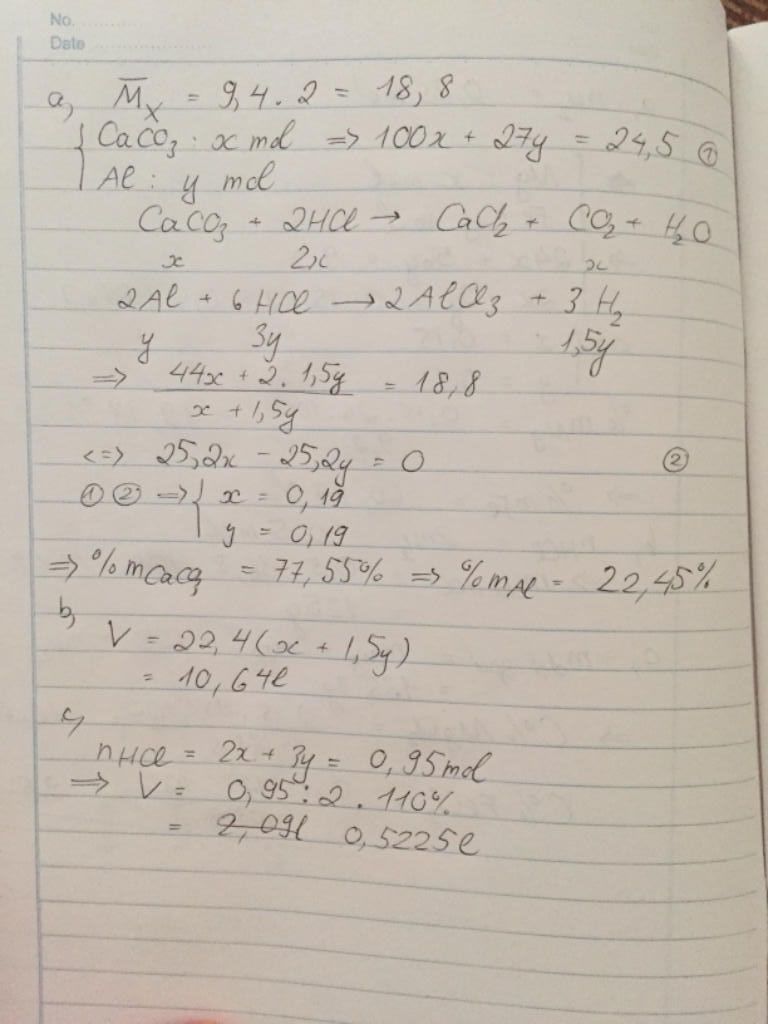 No.
Date
a, M̅X = 9,4 . 2 = 18,8
{ CaCO3 : x mol => 100x + 27y = 24,5 ①
Al : y mol
CaCO3 + 2HCl → CaCl2 + CO2 + H2O
x 2x x
2Al + 6HCl → 2AlCl3 + 3H2
y 3y 1,5y
=> 44x + 2 . 1,5y / x + 1,5y = 18,8
<=> 25,2x - 25,2y = 0 ②
① ② => { x = 0,19
y = 0,19
=> %mCaCO3 = 77,55% => %mAl = 22,45%
b,
V = 22,4(x + 1,5y)
= 10,64l
c,
nHCl = 2x + 3y = 0,95mol
=> V = 0,95 : 2 . 110%
= 2,09l 0,5225l